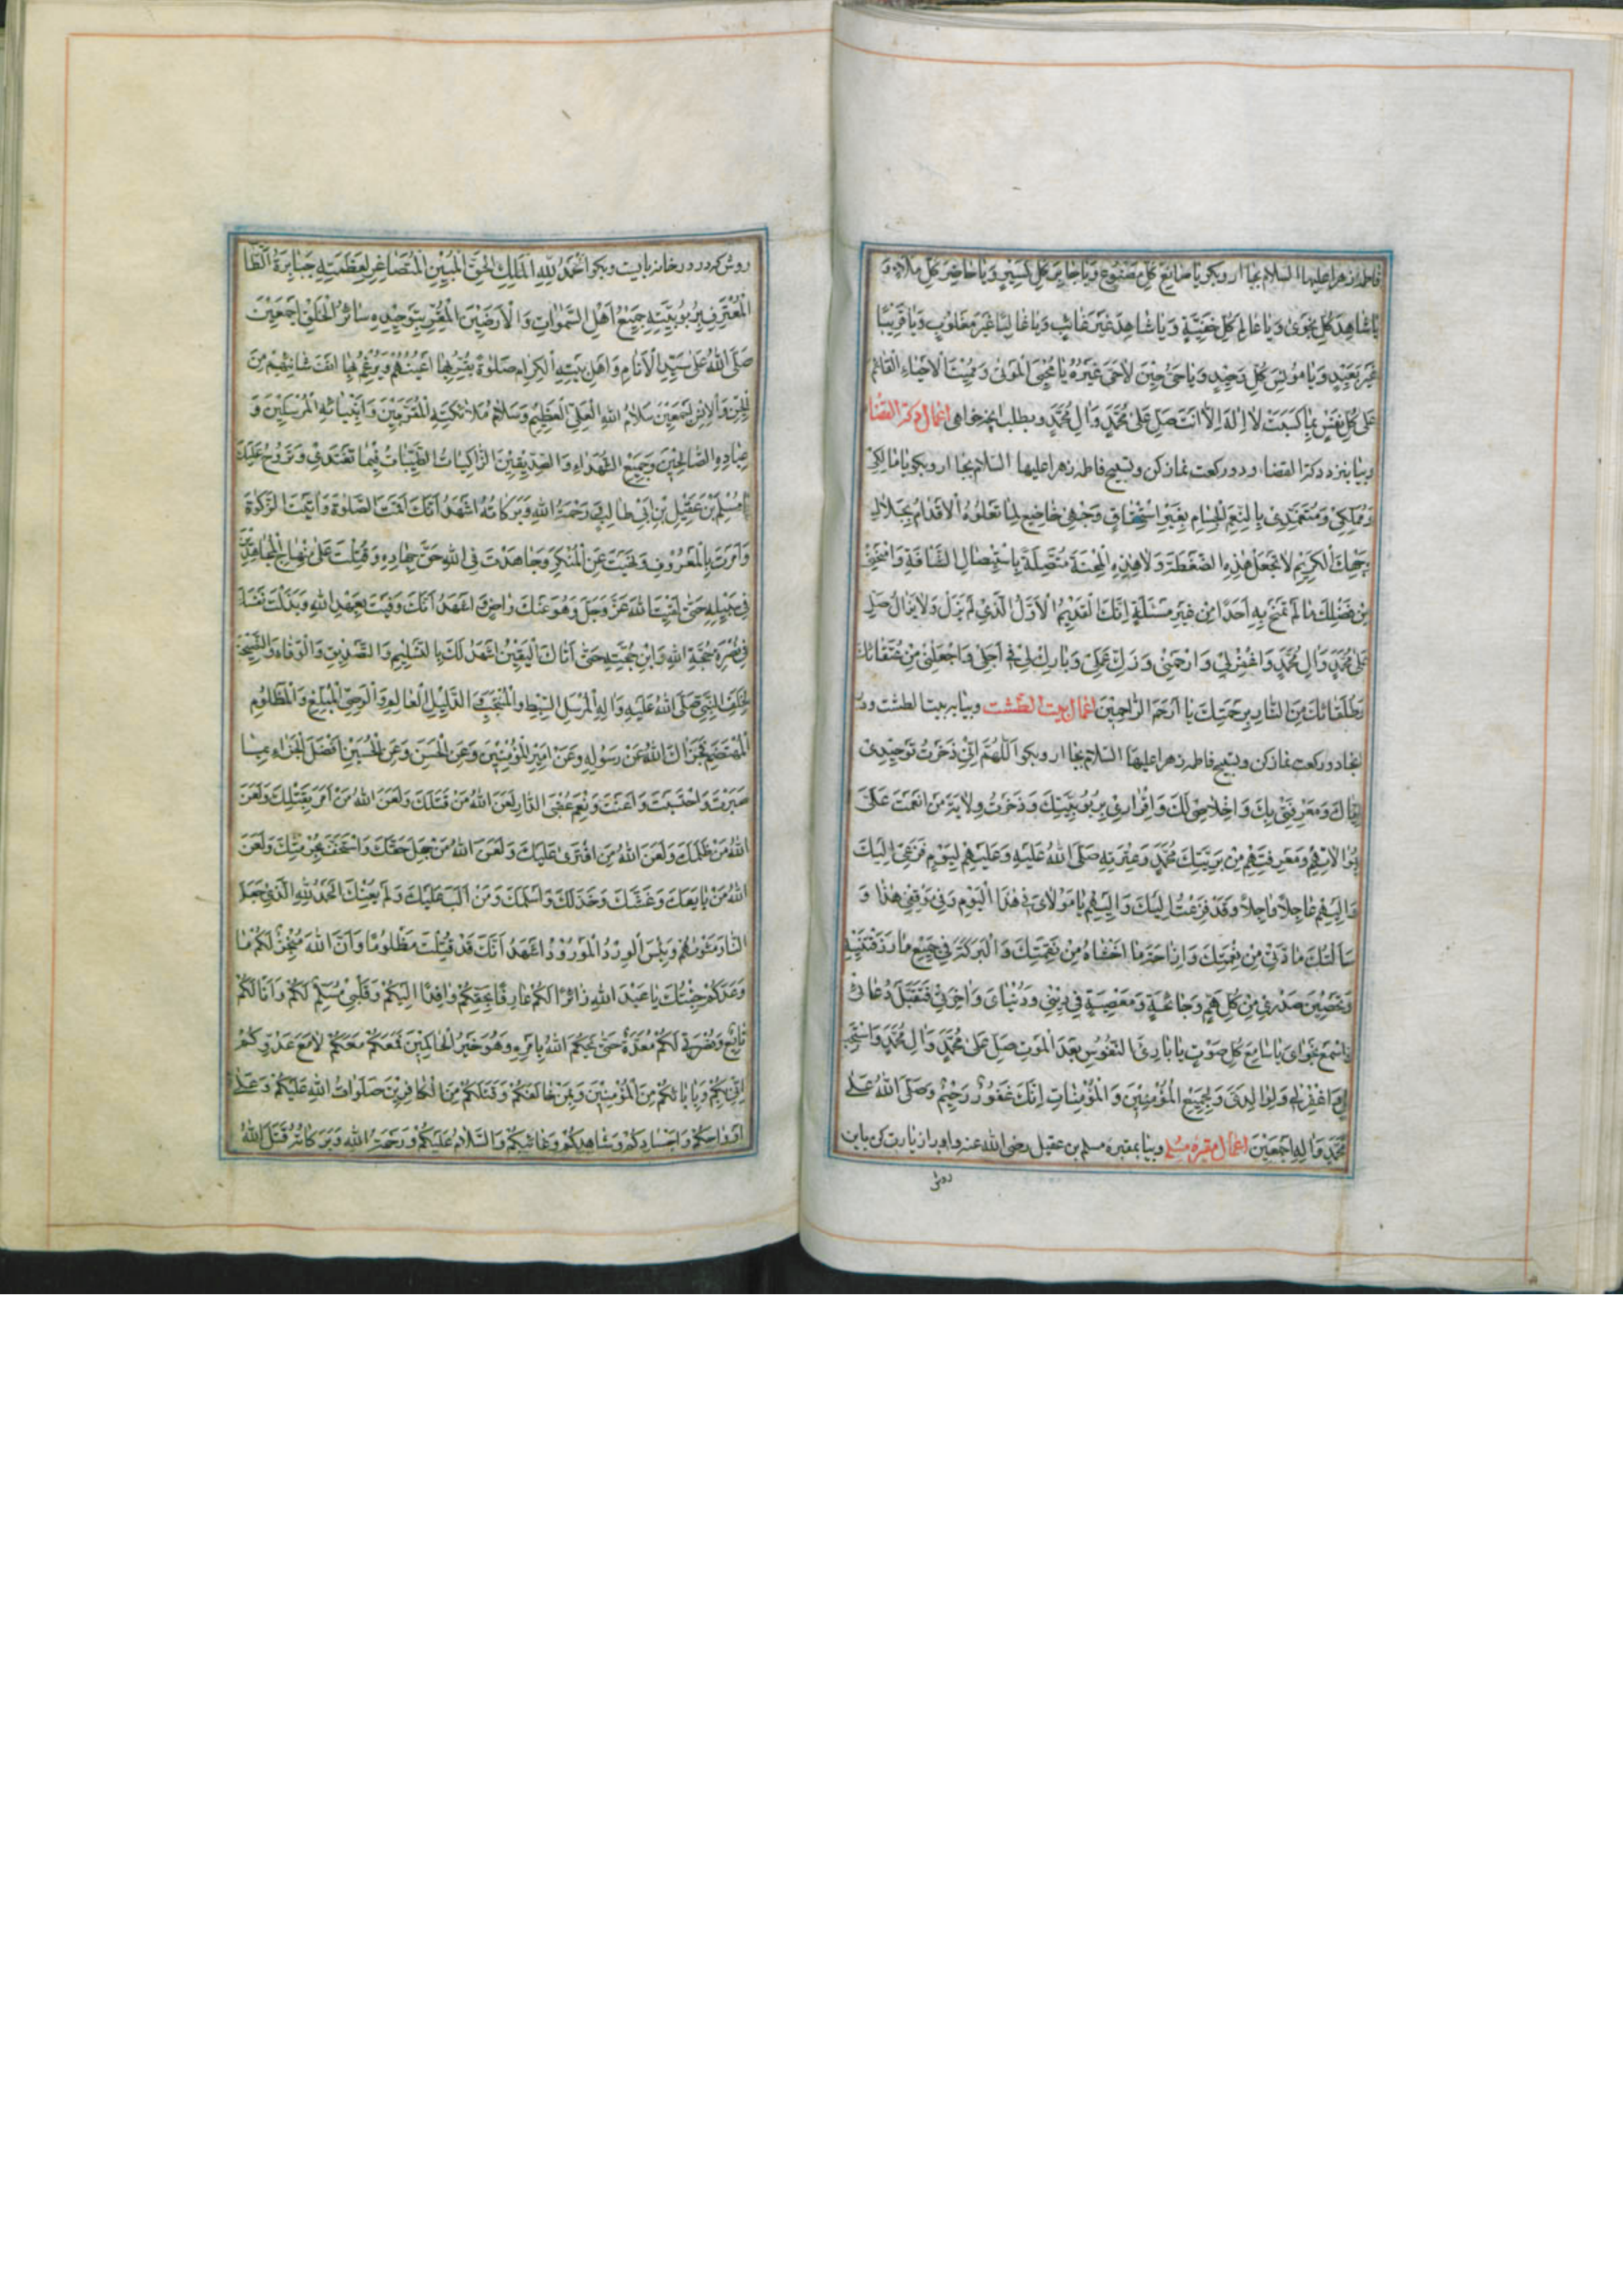 فاطمه زهرا علیها السلام بجا ار و بکو یا صانِعَ کُلِّ مَصْنُوعٍ وَیا جابِرَ کُلِّ کَسیرٍ وَیا حاضِرَ کُلِّ مَلَاءٍ وَ
یا شاهِدَ کُلِّ نَجْوی وَیا عالِمَ کُلِّ خَفِیَّةٍ وَیا شاهِدَ غَیْرَ غائِبٍ وَیا غالِبًا غَیْرَ مَغْلُوبٍ وَیا قَریبًا
غَیْرَ بَعیدٍ وَیا مُونِسَ کُلِّ وَحیدٍ وَیا حَیُّ حینَ لا حَیَّ غَیْرُهُ یا مُحْیِیَ الْمَوْتی وَمُمیتَ الْاَحْیاءِ الْقائِمُ
عَلی کُلِّ نَفْسٍ بِما کَسَبَتْ لا اِلهَ اِلّا اَنْتَ صَلِّ عَلی مُحَمَّدٍ وَالِ مُحَمَّدٍ و بطلب انچه خواهی اعمال دکة القضا
و بیا بنزد دکة القضا و دو رکعت نماز کن و تسبیح فاطمه زهرا علیها السلام بجا ار و بکو یا مالِکی
وَمُمَلِّکی وَمُتَغَمِّدی بِالنِّعَمِ الْجِسامِ بِغَیْرِ اسْتِحْقاقٍ وَجْهی خاضِعٌ لِما تَعْلُوهُ الْاَقْدامُ بِجَلالِ
وَجْهِکَ الْکَریمِ لا تَجْعَلْ هذِهِ الضَّغْطَةَ وَلا هذِهِ الْمِحْنَةَ مُتَّصِلَةً بِاسْتیصالِ الشَّافَةِ وَامْنَحْنی
مِنْ فَضْلِکَ ما لَمْ تَمْنَحْ بِهِ اَحَدًا مِنْ غَیْرِ مَسْئَلَةٍ اِنَّکَ الْقَدیمُ الْاَوَّلُ الَّذی لَمْ یَزَلْ وَلا یَزالُ صَلِّ
عَلی مُحَمَّدٍ وَالِ مُحَمَّدٍ وَاغْفِرْ لی وَارْحَمْنی وَزَکِّ عَمَلی وَبارِکْ لی فی اَجَلی وَاجْعَلْنی مِنْ عُتَقائِکَ
وَطُلَقائِکَ مِنَ النّارِ بِرَحْمَتِکَ یا اَرْحَمَ الرّاحِمینَ اعمال بیت الطشت و بیا به بیت الطشت و در
انجا دو رکعت نماز کن و تسبیح فاطمه زهرا علیها السلام بجا ار و بکو اَللّهُمَّ اِنّی ذَخَرْتُ تَوْحیدی
اِیّاکَ وَمَعْرِفَتی بِکَ وَاِخْلاصی لَکَ وَاِقْراری بِرُبُوبِیَّتِکَ وَذَخَرْتُ وِلایَةَ مَنْ اَنْعَمْتَ عَلَیَّ
بِوِلایَتِهِمْ وَمَعْرِفَتِهِمْ مِنْ بَرِیَّتِکَ مُحَمَّدٍ وَعِتْرَتِهِ صَلَّی اللهُ عَلَیْهِ وَعَلَیْهِمْ لِیَوْمِ فَزَعی اِلَیْکَ
وَاِلَیْهِمْ عاجِلاً وَاجِلاً وَقَدْ فَزِعْتُ اِلَیْکَ وَاِلَیْهِمْ یا مَوْلایَ فی هذَا الْیَوْمِ وَفی وَقْتی هذا وَ
سَاَلْتُکَ مادَّتی مِنْ نِعْمَتِکَ وَاِزاحَةَ ما اَخْشاهُ مِنْ نَقِمَتِکَ وَالْبَرَکَةَ فی جَمیعِ ما رَزَقْتَنیهِ
وَتَحْصینَ صَدْری مِنْ کُلِّ هَمٍّ وَجائِحَةٍ وَمَعْصِیَةٍ فی دینی وَدُنْیایَ وَاخِرَتی فَتَقَبَّلْ دُعائی
وَاسْمَعْ نَجْوایَ یا سامِعَ کُلِّ صَوْتٍ یا بارِئَ النُّفُوسِ بَعْدَ الْمَوْتِ صَلِّ عَلی مُحَمَّدٍ وَالِ مُحَمَّدٍ وَاسْتَجِبْ
لی وَاغْفِرْ لی وَلِوالِدَیَّ وَلِجَمیعِ الْمُؤْمِنینَ وَالْمُؤْمِناتِ اِنَّکَ غَفُورٌ رَحیمٌ وَصَلَّی اللهُ عَلی
مُحَمَّدٍ وَالِهِ اَجْمَعینَ اعمال مقبره مسلم و بیا بمقبره مسلم بن عقیل رضی الله عنه و او را زیارت کن باین
روش
روش که در در خانه بایست و بکو اَلْحَمْدُ لِلّهِ الْمَلِکِ الْحَقِّ الْمُبینِ الْمُتَصاغِرِ لِعَظَمَتِهِ جَبابِرَةُ الطّا
الْمُعْتَرِفِ بِرُبُوبِیَّتِهِ جَمیعُ اَهْلِ السَّمواتِ وَالْاَرَضینَ الْمُقِرِّ بِتَوْحیدِهِ سائِرُ الْخَلْقِ اَجْمَعینَ
صَلَّی اللهُ عَلی سَیِّدِ الْاَنامِ وَاَهْلِ بَیْتِهِ الْکِرامِ صَلوةً تَقَرُّ بِها اَعْیُنُهُمْ وَیَرْغَمُ بِها اَنْفُ شانِئِهِمْ مِنَ
الْجِنِّ وَالْاِنْسِ اَجْمَعینَ سَلامُ اللهِ الْعَلِیِّ الْعَظیمِ وَسَلامُ مَلائِکَتِهِ الْمُقَرَّبینَ وَاَنْبِیائِهِ الْمُرْسَلینَ وَ
عِبادِهِ الصّالِحینَ وَجَمیعِ الشُّهَداءِ وَالصِّدّیقینَ الزّاکِیاتُ الطَّیِّباتُ فیما تَغْتَدی وَتَرُوحُ عَلَیْکَ
یا مُسْلِمَ بْنَ عَقیلِ بْنِ اَبی طالِبٍ وَرَحْمَةُ اللهِ وَبَرَکاتُهُ اَشْهَدُ اَنَّکَ اَقَمْتَ الصَّلوةَ وَاتَیْتَ الزَّکوةَ
وَاَمَرْتَ بِالْمَعْرُوفِ وَنَهَیْتَ عَنِ الْمُنْکَرِ وَجاهَدْتَ فِی اللهِ حَقَّ جِهادِهِ وَقُتِلْتَ عَلی مِنْهاجِ الْمُجاهِدینَ
فی سَبیلِهِ حَتّی لَقیتَ اللهَ عَزَّ وَجَلَّ وَهُوَ عَنْکَ راضٍ وَاَشْهَدُ اَنَّکَ وَفَیْتَ بِعَهْدِ اللهِ وَبَذَلْتَ نَفْسَکَ
فی نُصْرَةِ حُجَّةِ اللهِ وَابْنِ حُجَّتِهِ حَتّی اَتاکَ الْیَقینُ اَشْهَدُ لَکَ بِالتَّسْلیمِ وَالتَّصْدیقِ وَالْوَفاءِ وَالنَّصیحَةِ
لِخَلَفِ النَّبِیِّ صَلَّی اللهُ عَلَیْهِ وَالِهِ الْمُرْسَلِ السِّبْطِ وَالْمُنْتَجَبِ وَالدَّلیلِ الْعالِمِ وَالْوَصِیِّ الْمُبَلِّغِ وَالْمَظْلُومِ
الْمُهْتَضَمِ فَجَزاکَ اللهُ عَنْ رَسُولِهِ وَعَنْ اَمیرِ الْمُؤْمِنینَ وَعَنِ الْحَسَنِ وَعَنِ الْحُسَیْنِ اَفْضَلَ الْجَزاءِ بِما
صَبَرْتَ وَاحْتَسَبْتَ وَاَعَنْتَ وَنِعْمَ عُقْبَی الدّارِ لَعَنَ اللهُ مَنْ قَتَلَکَ وَلَعَنَ اللهُ مَنْ اَمَرَ بِقَتْلِکَ وَلَعَنَ
اللهُ مَنْ ظَلَمَکَ وَلَعَنَ اللهُ مَنِ افْتَری عَلَیْکَ وَلَعَنَ اللهُ مَنْ جَهِلَ حَقَّکَ وَاسْتَخَفَّ بِحُرْمَتِکَ وَلَعَنَ
اللهُ مَنْ بایَعَکَ وَغَشَّکَ وَخَذَلَکَ وَاَسْلَمَکَ وَمَنْ اَلَبَّ عَلَیْکَ وَلَمْ یُعِنْکَ اَلْحَمْدُ لِلّهِ الَّذی جَعَلَ
النّارَ مَثْویهُمْ وَبِئْسَ الْوِرْدُ الْمَوْرُودُ اَشْهَدُ اَنَّکَ قَدْ قُتِلْتَ مَظْلُومًا وَاَنَّ اللهَ مُنْجِزٌ لَکُمْ ما
وَعَدَکُمْ جِئْتُکَ یا عَبْدَ اللهِ زائِرًا لَکُمْ عارِفًا بِحَقِّکُمْ وافِدًا اِلَیْکُمْ وَقَلْبی مُسَلِّمٌ لَکُمْ وَاَنَا لَکُمْ
تابِعٌ وَنُصْرَتی لَکُمْ مُعَدَّةٌ حَتّی یَحْکُمَ اللهُ بِاَمْرِهِ وَهُوَ خَیْرُ الْحاکِمینَ فَمَعَکُمْ مَعَکُمْ لا مَعَ عَدُوِّکُمْ
اِنّی بِکُمْ وَبِابائِکُمْ مِنَ الْمُؤْمِنینَ وَبِمَنْ خالَفَکُمْ وَقَتَلَکُمْ مِنَ الْکافِرینَ صَلَواتُ اللهِ عَلَیْکُمْ وَعَلی
اَرْواحِکُمْ وَاَجْسادِکُمْ وَشاهِدِکُمْ وَغائِبِکُمْ وَالسَّلامُ عَلَیْکُمْ وَرَحْمَةُ اللهِ وَبَرَکاتُهُ قَتَلَ اللهُ